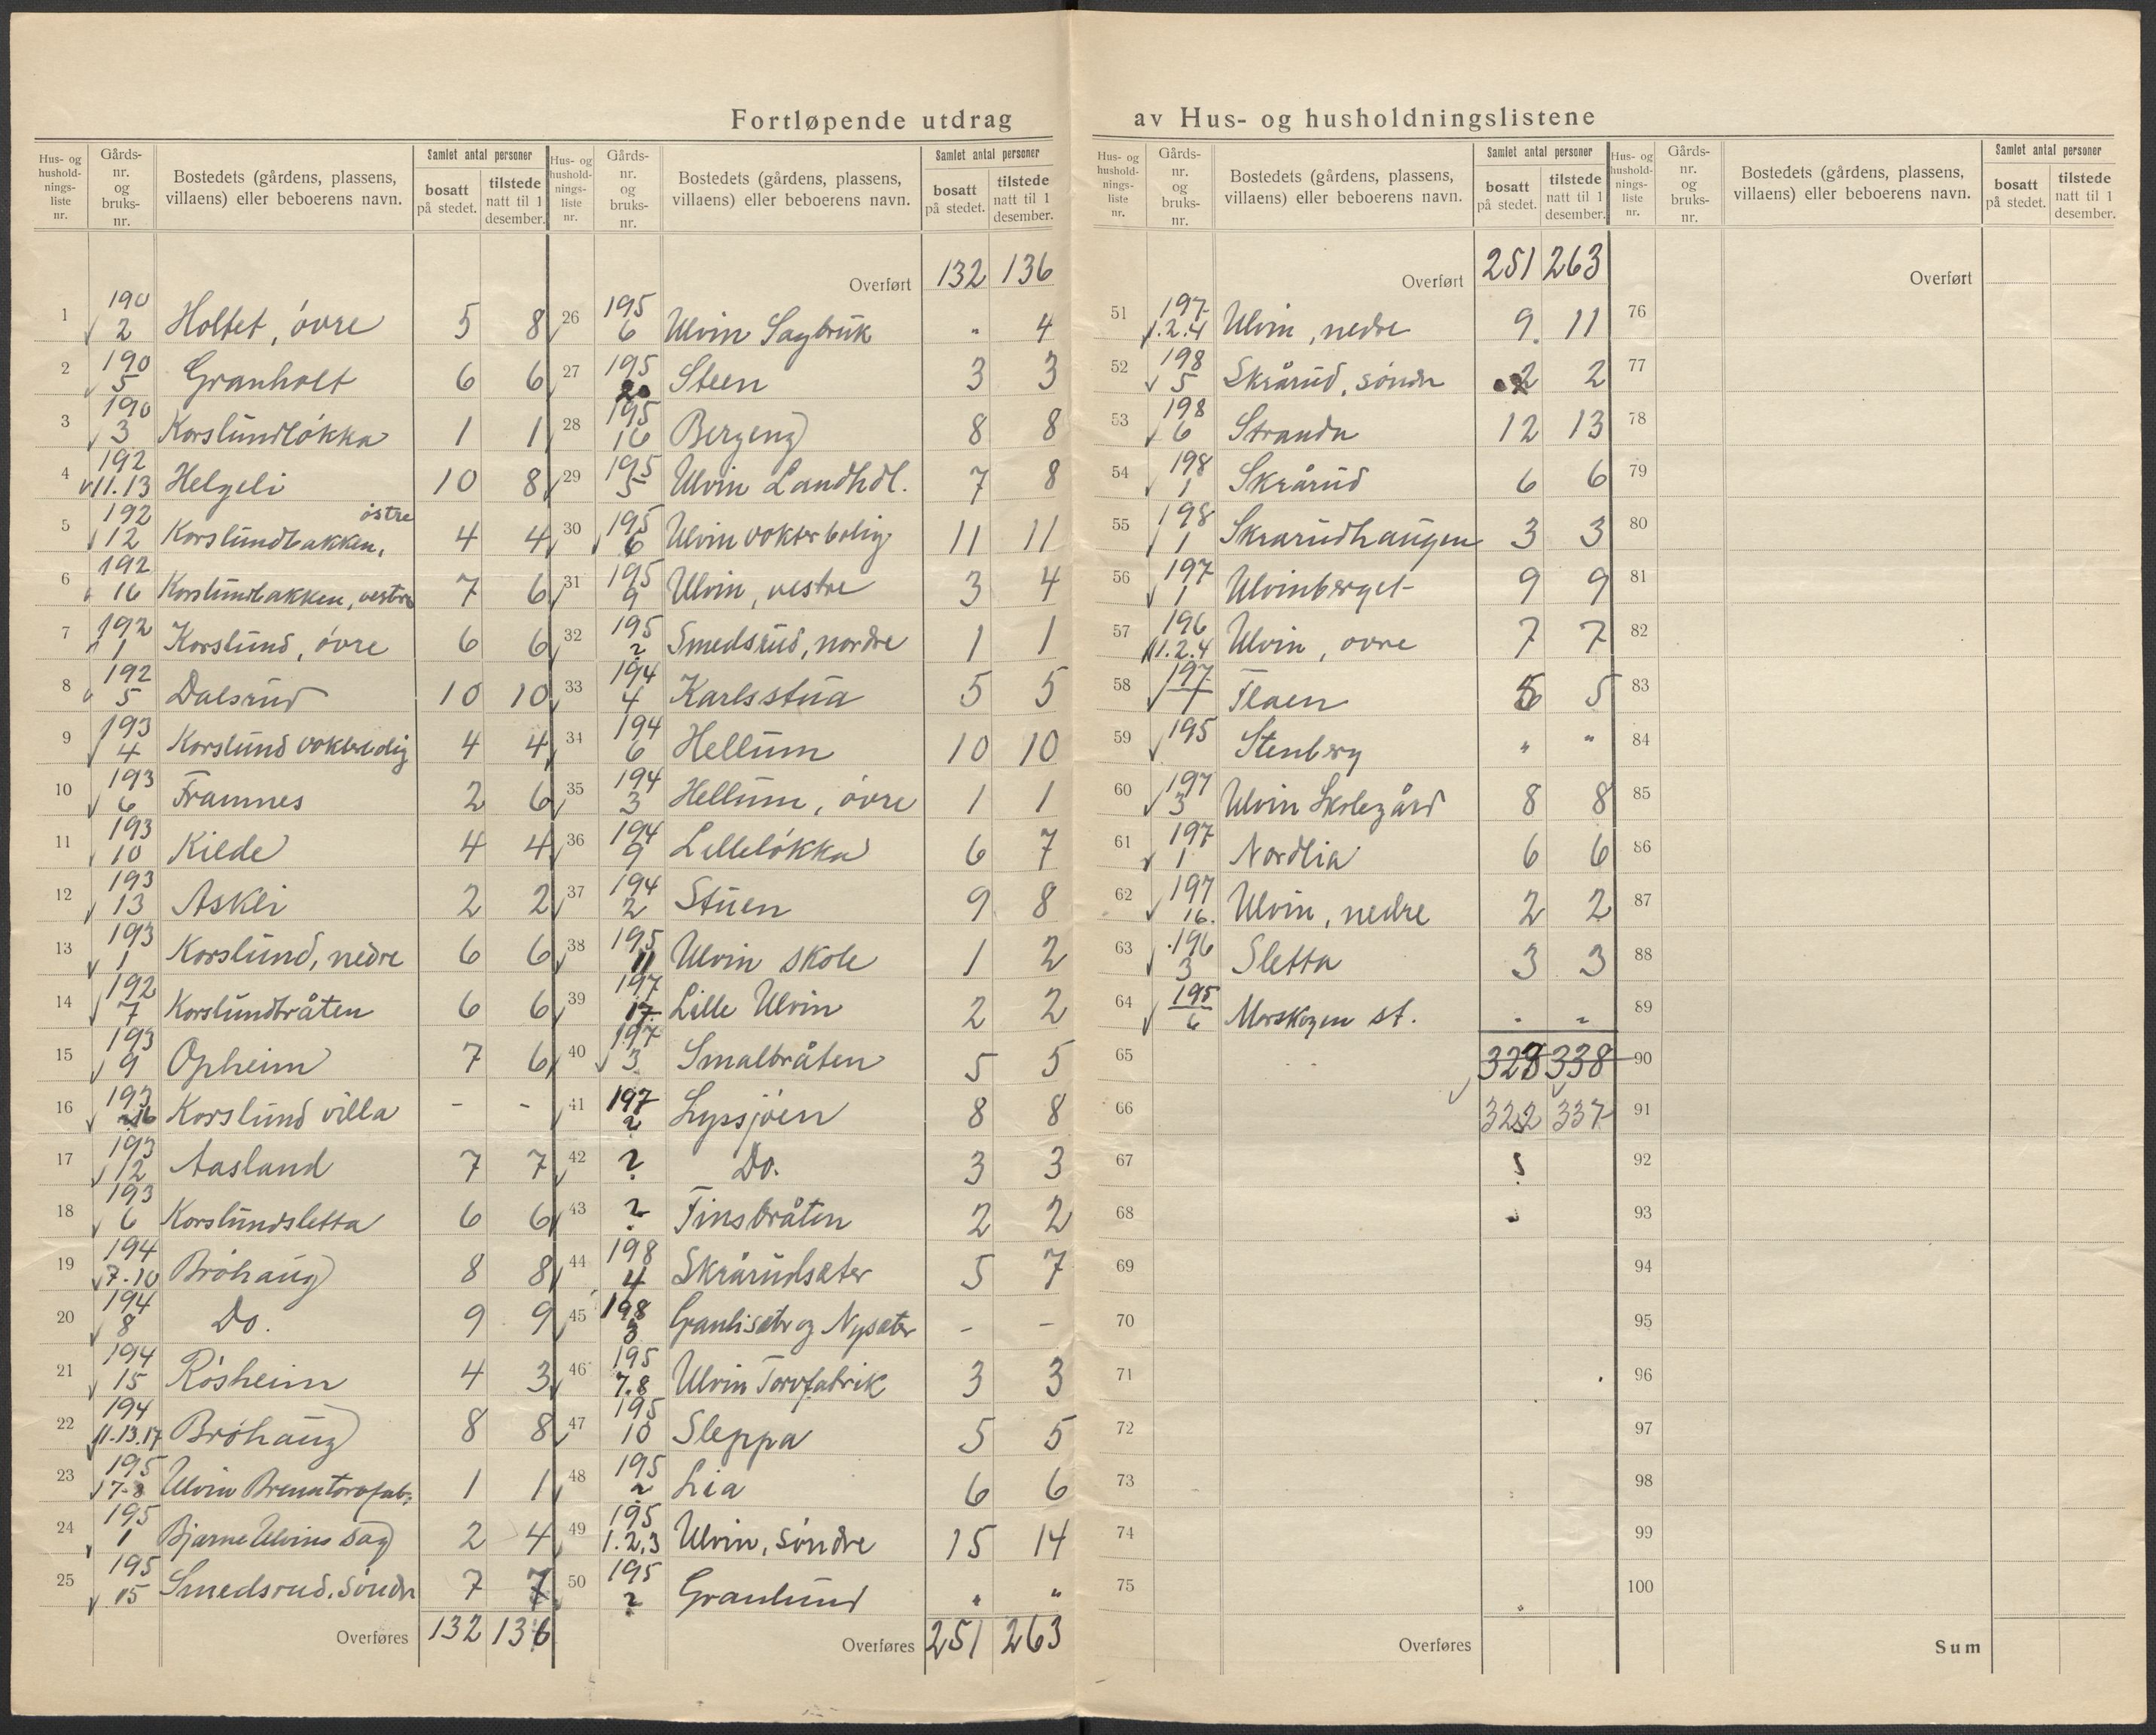 Fortløpende utdrag av Hus- og husholdningslistene
Hus- og husholdningsliste nr. Gårds-nr. og bruks-nr. Bostedets (gårdens, plassens, villaens) eller beboerens navn. Samlet antal personer bosatt på stedet. tilstede natt til 1 desember.
1 190 2 Holtet, övre 5 8
2 190 5 Granholt 6 6
3 190 3 Korslundlökka 1 1
4 192 11.13 Helgeli 10 8
5 192 12 Korslundbakken, östre 4 4
6 192 16 Korslundbakken, vestre 7 6
7 192 1 Korslund, övre 6 6
8 192 5 Dalsrud 10 10
9 193 4 Korslund vokterbolig 4 4
10 193 6 Framnes 2 6
11 193 10 Kilde 4 4
12 193 13 Askli 2 2
13 193 1 Korslund, nedre 6 6
14 192 7 Korslundbråten 6 6
15 193 9 Opheim 7 6
16 193 16 Korslund villa - -
17 193 12 Aasland 7 7
18 193 6 Korslundsletta 6 6
19 194 7-10 Bröhaug 8 8
20 194 8 Do. 9 9
21 194 15 Rösheim 4 3
22 194 11-13.17 Bröhaug 8 8
23 195 Ulvin Brenntorvfab. 1 1
24 195 1 Bjarne Ulvins Sag 2 4
25 195 15 Smedsrud, Söndr 7 7
Overføres 132 136
Hus- og husholdningsliste nr. Gårds-nr. og bruks-nr. Bostedets (gårdens, plassens, villaens) eller beboerens navn. Samlet antal personer bosatt på stedet. tilstede natt til 1 desember.
Overført 132 136
26 195 6 Ulvin Sagbruk " 4
27 195 20 Steen 3 3
28 195 16 Bergeng 8 8
29 195 5 Ulvin Landhdl. 7 8
30 195 6 Ulvin vokterbolig 11 11
31 195 9 Ulvin, vestre 3 4
32 195 ? Smedsrud, nordre 1 1
33 194 4 Karlsstua 5 5
34 194 6 Hellum 10 10
35 194 3 Hellum, övre 1 1
36 194 9 Lillelökka 6 7
37 194 2 Stuen 9 8
38 195 11 Ulvin skole 1 2
39 197 17 Lille Ulvin 2 2
40 197 3 Smalbråten 5 5
41 197 ? Lyssjöen 8 8
42 ? Do. 3 3
43 ? Finsbråten 2 2
44 198 4 Skrårudsæter 5 7
45 198 3 Granlisæter og Nysæter - -
46 195 7.8 Ulvin Torvfabrik 3 3
47 195 10 Sleppa 5 5
48 195 ? Lia 6 6
49 195 1.2,3 Ulvin, Söndre 15 14
50 195 ? Granlund " "
Overføres 251 263
Hus- og husholdningsliste nr. Gårds-nr. og bruks-nr. Bostedets (gårdens, plassens, villaens) eller beboerens navn. Samlet antal personer bosatt på stedet. tilstede natt til 1 desember.
Overført 251 263
51 197 1.2.4 Ulvin, nedre 9 11
52 198 5 Skrårud, söndr 2 2
53 198 6 Stranda 12 13
54 198 1 Skrårud 6 6
55 198 1 Skrarudhaugen 3 3
56 197 1 Ulvinberget 9 9
57 196 1.2.4 Ulvin, ovre 7 7
58 197 1 Flaen 5 5
59 195 Stenberg " "
60 197 3 Ulvin Skolegård 8 8
61 197 1 Nordlia 6 6
62 197 16. Ulvin, nedre 2 2
63 196 3 Sletta 3 3
64 195 6 Morskogen st. - -
65 323 338
66 322 337
67
68
69
70
71
72
73
74
75
Overføres
Hus- og husholdningsliste nr. Gårds-nr. og bruks-nr. Bostedets (gårdens, plassens, villaens) eller beboerens navn. Samlet antal personer bosatt på stedet. tilstede natt til 1 desember.
Overført
76
77
78
79
80
81
82
83
84
85
86
87
88
89
90
91
92
93
94
95
96
97
98
99
100
Sum